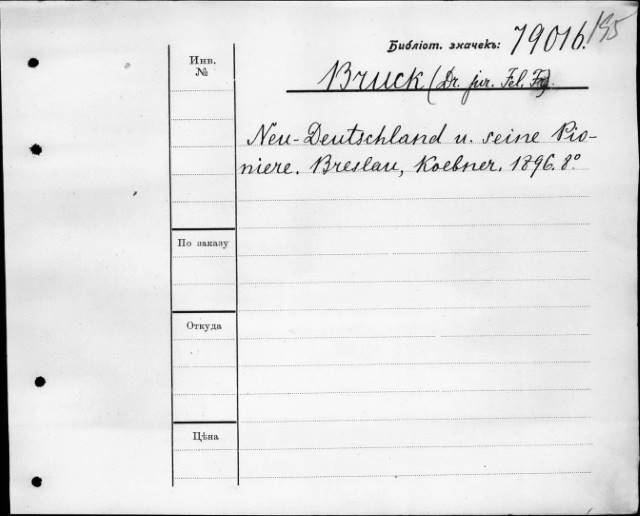 Библіот. значекъ: 79016./195
Инв. №
Bruck (Dr. jur. Fel. Fr.)
Neu-Deutschland u. seine Pio-
niere. Breslau, Koebner. 1896. 8°
По заказу
Откуда
Цѣна